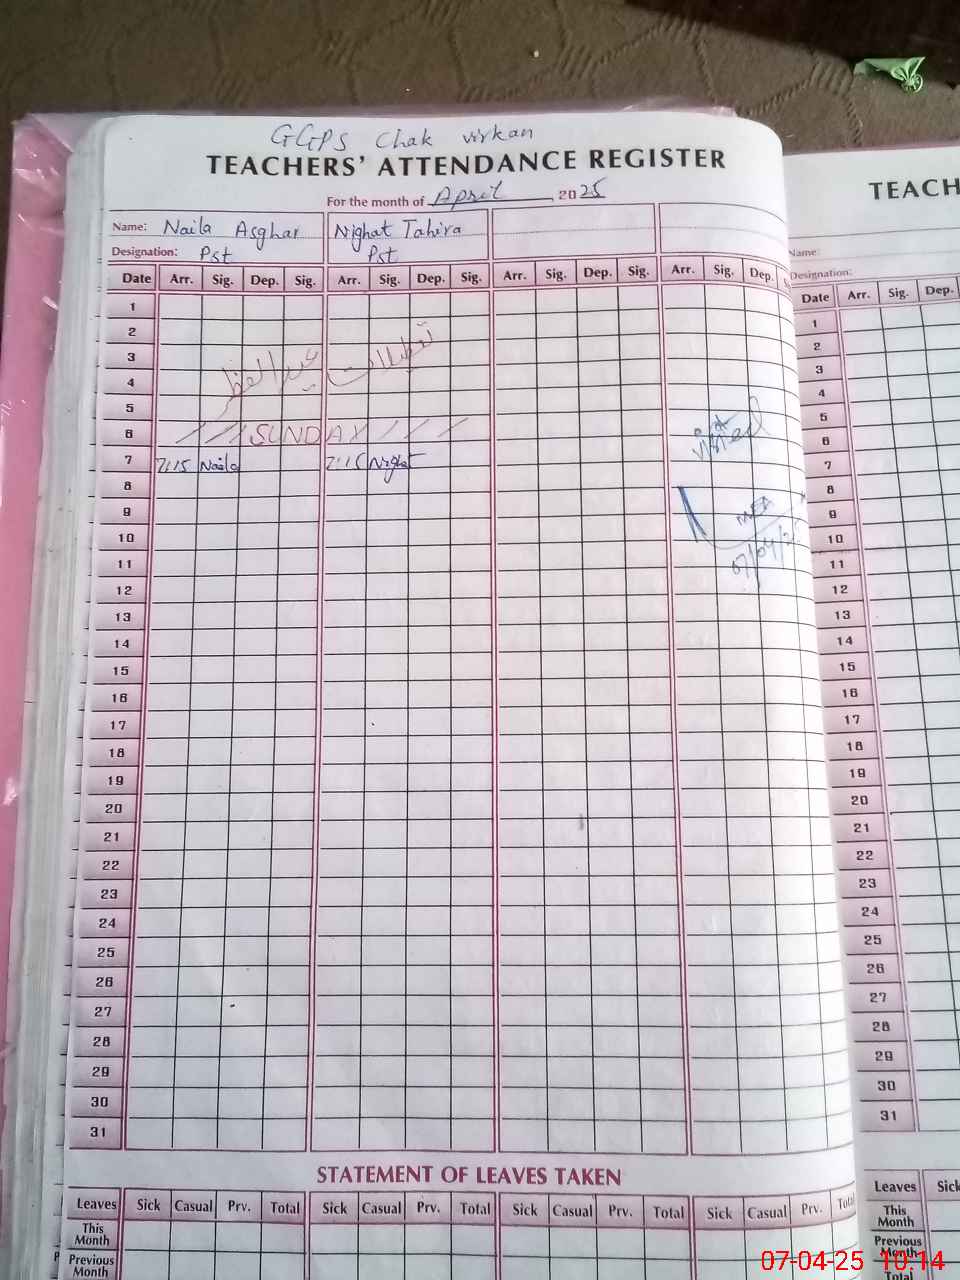 GGPS Chak virkan
TEACHERS' ATTENDANCE REGISTER
For the month of April 2025
Name: Naila Asghar Nighat Tahira
Designation: Pst Pst
Date Arr. Sig. Dep. Sig. Arr. Sig. Dep. Sig. Arr. Sig. Dep. Sig. Arr. Sig. Dep.
1
2
3
تعطیلات عید الفطر
4
5
6 SUNDAY
7 7:15 Naila 7:15 Nighat
visited
8
9
MEA
10
07/04/2
11
12
13
14
15
16
17
18
19
20
21
22
23
24
25
26
27
28
29
30
31
STATEMENT OF LEAVES TAKEN
Leaves Sick Casual Prv. Total Sick Casual Prv. Total Sick Casual Prv. Total Sick Casual Prv. Total
This Month
Previous Month
TEACH
Name:
Designation:
Date Arr. Sig. Dep.
1
2
3
4
5
6
7
8
9
10
11
12
13
14
15
16
17
18
19
20
21
22
23
24
25
26
27
28
29
30
31
Leaves Sick
This Month
Previous Month
Total
07-04-25 10:14